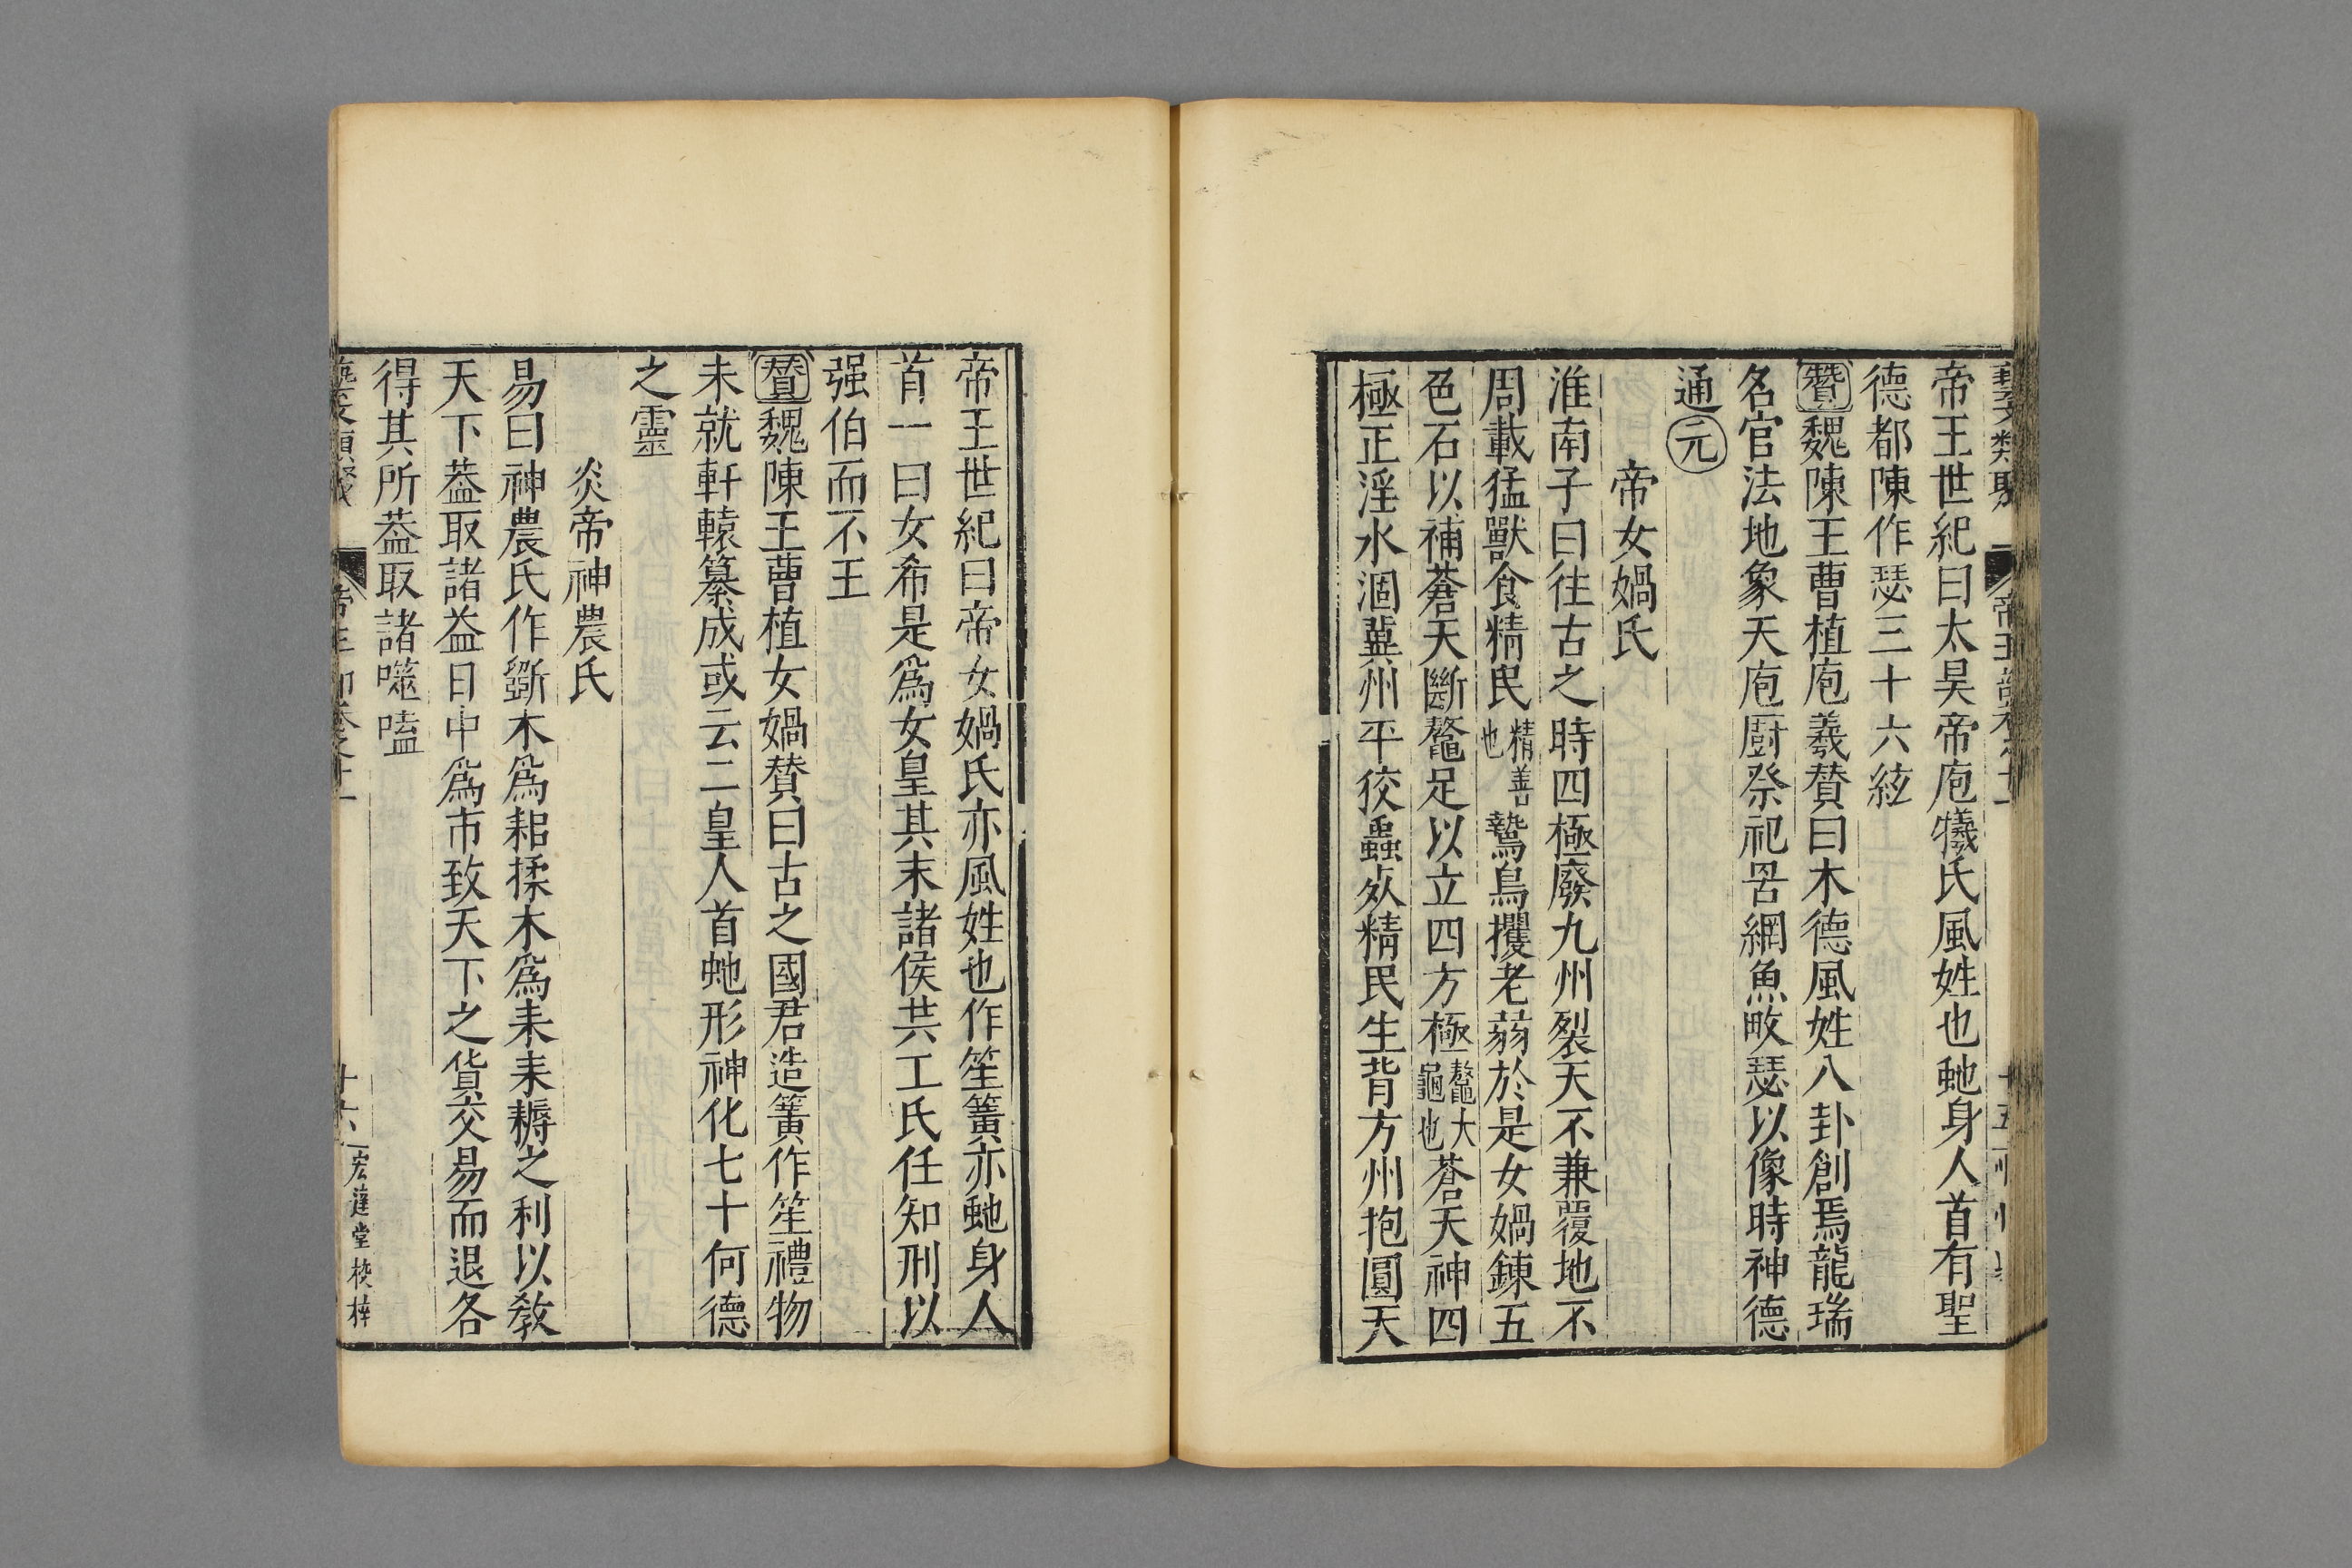 藝文類聚 帝王部卷之十一 十五
帝王世紀曰太昊帝庖犧氏風姓也虵身人首有聖
德都陳作瑟三十六絃
贊魏陳王曹植庖羲贊曰木德風姓八卦創焉龍瑞
名官法地象天庖厨祭祀罟網魚畋瑟以像時神德
通元
帝女媧氏
淮南子曰往古之時四極廢九州裂天不兼覆地不
周載猛獸食精民精善也鷙鳥攫老蒻於是女媧鍊五
色石以補蒼天斷鼇足以立四方極鼇大龜也蒼天神四
極正淫水涸冀州平狡蟲㱙精民生背方州抱圓天
帝王世紀曰帝女媧氏亦風姓也作笙簧亦虵身人
首一曰女希是爲女皇其末諸侯共工氏任知刑以
强伯而不王
贊魏陳王曹植女媧贊曰古之國君造簧作笙禮物
未就軒轅篡成或云二皇人首虵形神化七十何德
之靈
炎帝神農氏
易曰神農氏作斵木爲耜揉木爲耒耒耨之利以敎
天下葢取諸益日中爲市致天下之貨交易而退各
得其所葢取諸噬嗑
藝文類聚 帝王部卷之十一 十六 宏達堂校梓